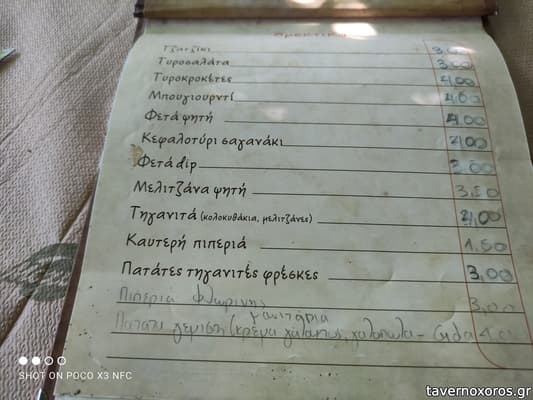 Ορεκτικά
Τζατζίκι 3,00
Τυροσαλάτα 3,00
Τυροκροκέτες 4,00
Μπουγιουρντί 4,00
Φετά ψητή 4,00
Κεφαλοτύρι σαγανάκι 4,00
Φετά dip 3,00
Μελιτζάνα ψητή 3,50
Τηγανιτά (κολοκυθάκια, μελιτζάνες) 4,00
Καυτερή πιπεριά 1,50
Πατάτες τηγανιτές φρέσκες 3,00
Πιπερια Φλωρινης 3,00
μανιταρια
Πατατα γεμιστη (κρεμα γαλακτως,
SHOT ON POCO X3 NFC
tavernoxoros.gr